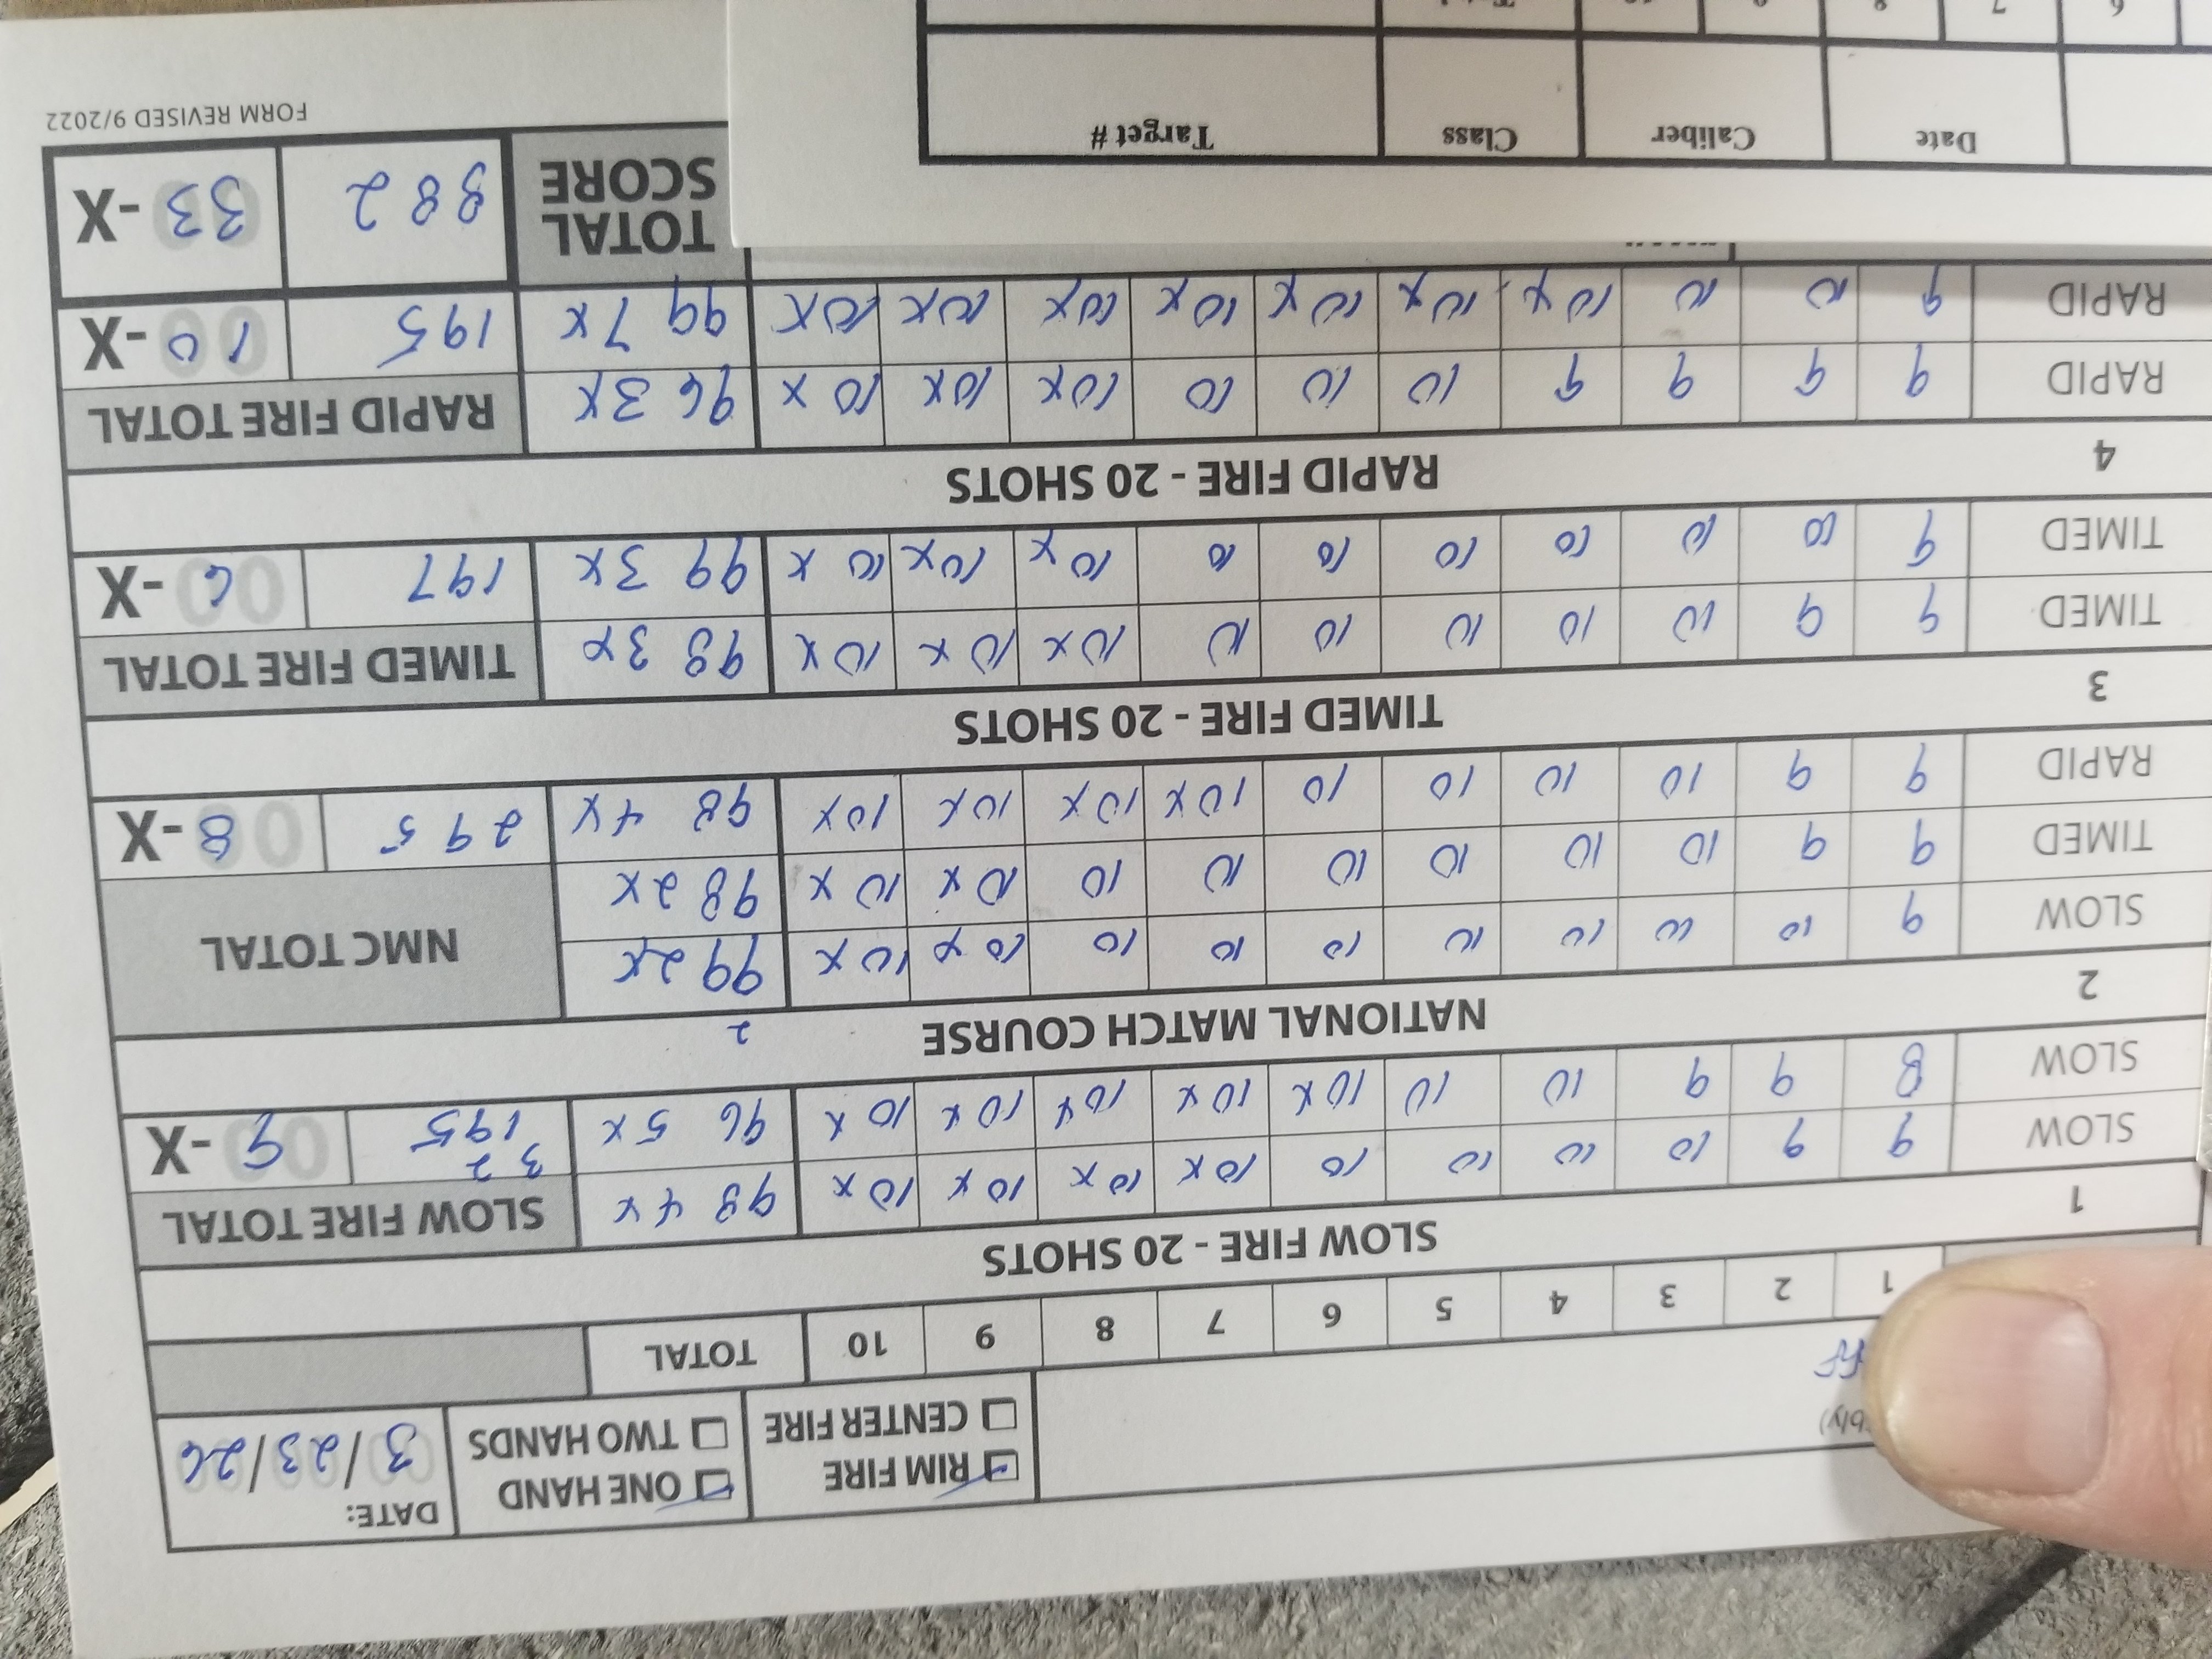 DATE: 3/23/26
ONE HAND
TWO HANDS
RIM FIRE
CENTER FIRE
1 2 3 4 5 6 7 8 9 10 TOTAL
1 SLOW FIRE - 20 SHOTS
SLOW 9 9 10 10 10 10 10X 10X 10X 10X 98 4X SLOW FIRE TOTAL
SLOW 8 9 9 10 10 10X 10X 10X 10X 10X 96 5X 195 9-X
3 2
2 NATIONAL MATCH COURSE 2
SLOW 9 10 10 10 10 10 10 10 10X 10X 99 2X NMC TOTAL
TIMED 9 9 10 10 10 10 10 10 10X 10X 98 2X
RAPID 9 9 10 10 10 10 10X 10X 10X 10X 98 4X 295 8-X
3 TIMED FIRE - 20 SHOTS
TIMED 9 9 10 10 10 10 10 10X 10X 10X 98 3X TIMED FIRE TOTAL
TIMED 9 10 10 10 10 10 10 10X 10X 10X 99 3X 197 6-X
4 RAPID FIRE - 20 SHOTS
RAPID 9 9 9 9 10 10 10 10X 10X 10X 96 3X RAPID FIRE TOTAL
RAPID 9 10 10 10X 10X 10X 10X 10X 10X 10X 99 7X 195 10-X
TOTAL SCORE 882 33-X
FORM REVISED 9/2022
Date Caliber Class Target #
6 7 8 9 10 Total